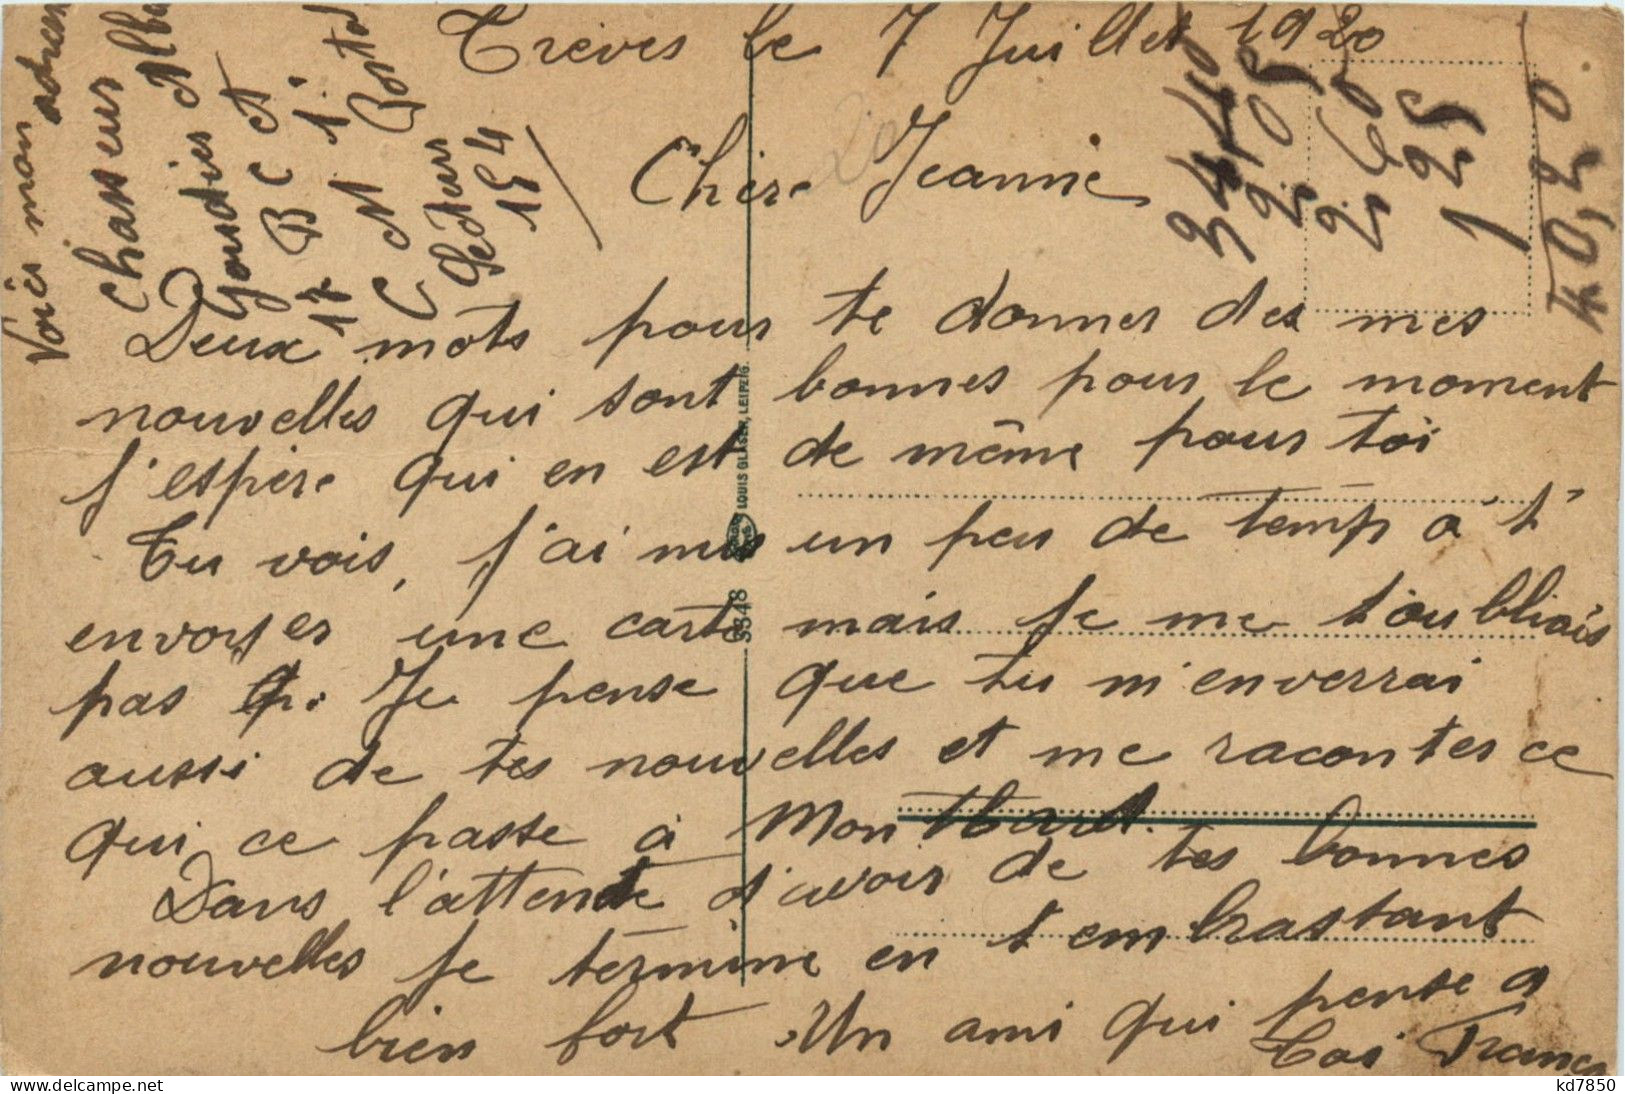 Trèves le 7 Juillet 1920
Voici mon adresse
Chasseur
17 B C A
Secteurs 154
Chère Jeanne
Deux mots pour te donner des mes
nouvelles qui sont bonnes pour le moment
j'espère qui en est de même pour toi
Tu vois, j'ai mis un peu de temp a t'
envoyer une carte mais je me t'oubliais
pas Je pense que tu m'enverrai
aussi de tes nouvelles et me raconter ce
qui ce passe à Montbard.
Dans l'attente d'avoir de tes bonnes
nouvelles je termine en t'embrassant
bien fort. Un ami qui pense a
toi
34440
2205
2260
125 1
LOUIS GLASER, LEIPZIG.
3348
kd7850